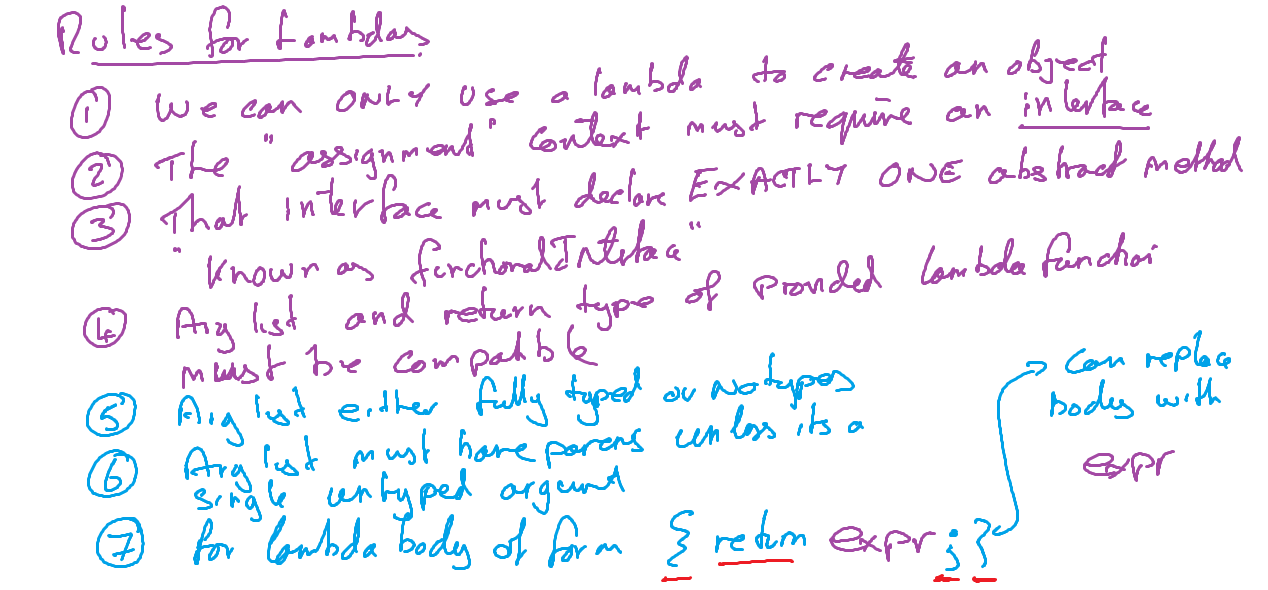 Rules for Lambdas
① We can ONLY use a lambda to create an object
② The "assignment" context must require an interface
③ That interface must declare EXACTLY ONE abstract method
"Known as functionalInterface"
④ Arg list and return type of provided lambda function
must be compatible
⑤ Arg list either fully typed or no types
⑥ Arg list must have parens unless its a
single untyped argument
⑦ for lambda body of form { return expr ; }
Can replace
body with
expr